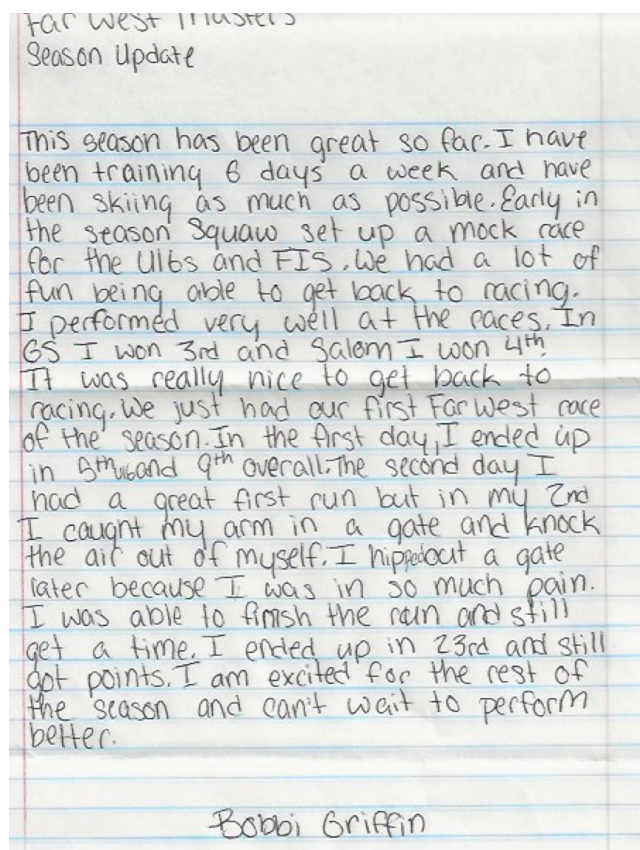 Far West Masters
Season Update
This season has been great so far. I have
been training 6 days a week and have
been skiing as much as possible. Early in
the season Squaw set up a mock race
for the U16s and FIS. We had a lot of
fun being able to get back to racing.
I performed very well at the races. In
GS I won 3rd and Salom I won 4th.
It was really nice to get back to
racing. We just had our first Far West race
of the season. In the first day, I ended up
in 5th u16 and 9th overall. The second day I
had a great first run but in my 2nd
I caught my arm in a gate and knock
the air out of myself. I hipped out a gate
later because I was in so much pain.
I was able to finish the run and still
get a time. I ended up in 23rd and still
got points. I am excited for the rest of
the season and can't wait to perform
better.
Bobbi Griffin